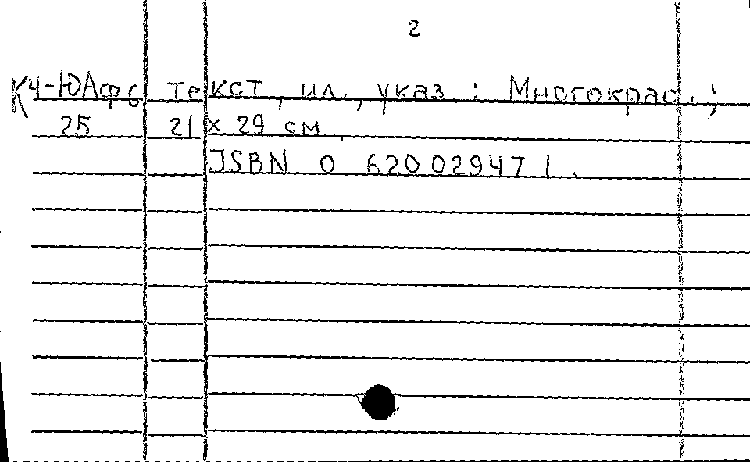 2
К4-ЮАфр текст, ил., указ : Многокрас. ;
25 21 x 29 см.
JSBN 0 620 02947 1.